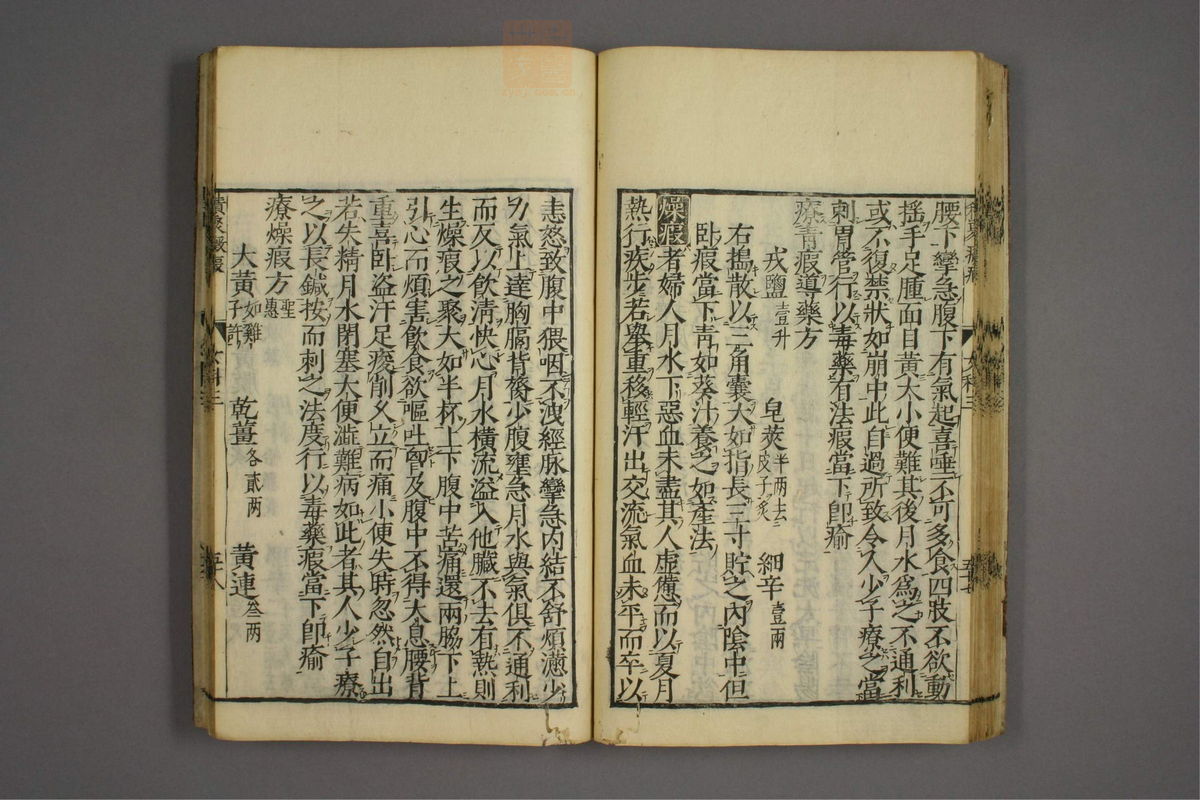 腰下攣急腹下有氣起喜唾不可多食四肢不欲動
搖手足腫面目黃大小便難其後月水為之不通利
或不復禁狀如崩中此自過所致令人少子療之當
刺胃管行以毒藥有法瘕當下卽瘉
療青瘕導藥方
戎鹽壹升 皂莢半兩去皮子炙 細辛壹兩
右搗散以三角囊大如指長三寸貯之內陰中但
臥瘕當下青如葵汁養之如產法
燥瘕者婦人月水下惡血未盡其人虛憊而以夏月
熱行疾步若舉重移輕汗出交流氣血未平而卒以
恚怒致腹中猥咽不洩經脉攣急內結不舒煩懣少
力氣上達胸膈背膂少腹壅急月水與氣俱不通利
而反以飲清快心月水橫流溢入他臟不去有熱則
生燥瘕之聚大如半杯上下腹中苦痛還兩脇下上
引心而煩害飲食欲嘔吐胷及腹中不得大息腰背
重喜臥盜汗足痠削久立而痛小便失時忽然自出
若失精月水閉塞大便澁難病如此者其人少子療
之以長鍼按而刺之法度行以毒藥瘕當下卽瘉
療燥瘕方聖惠
大黃如雞子許 乾薑各貳兩 黃連叁兩
女科三
五十八